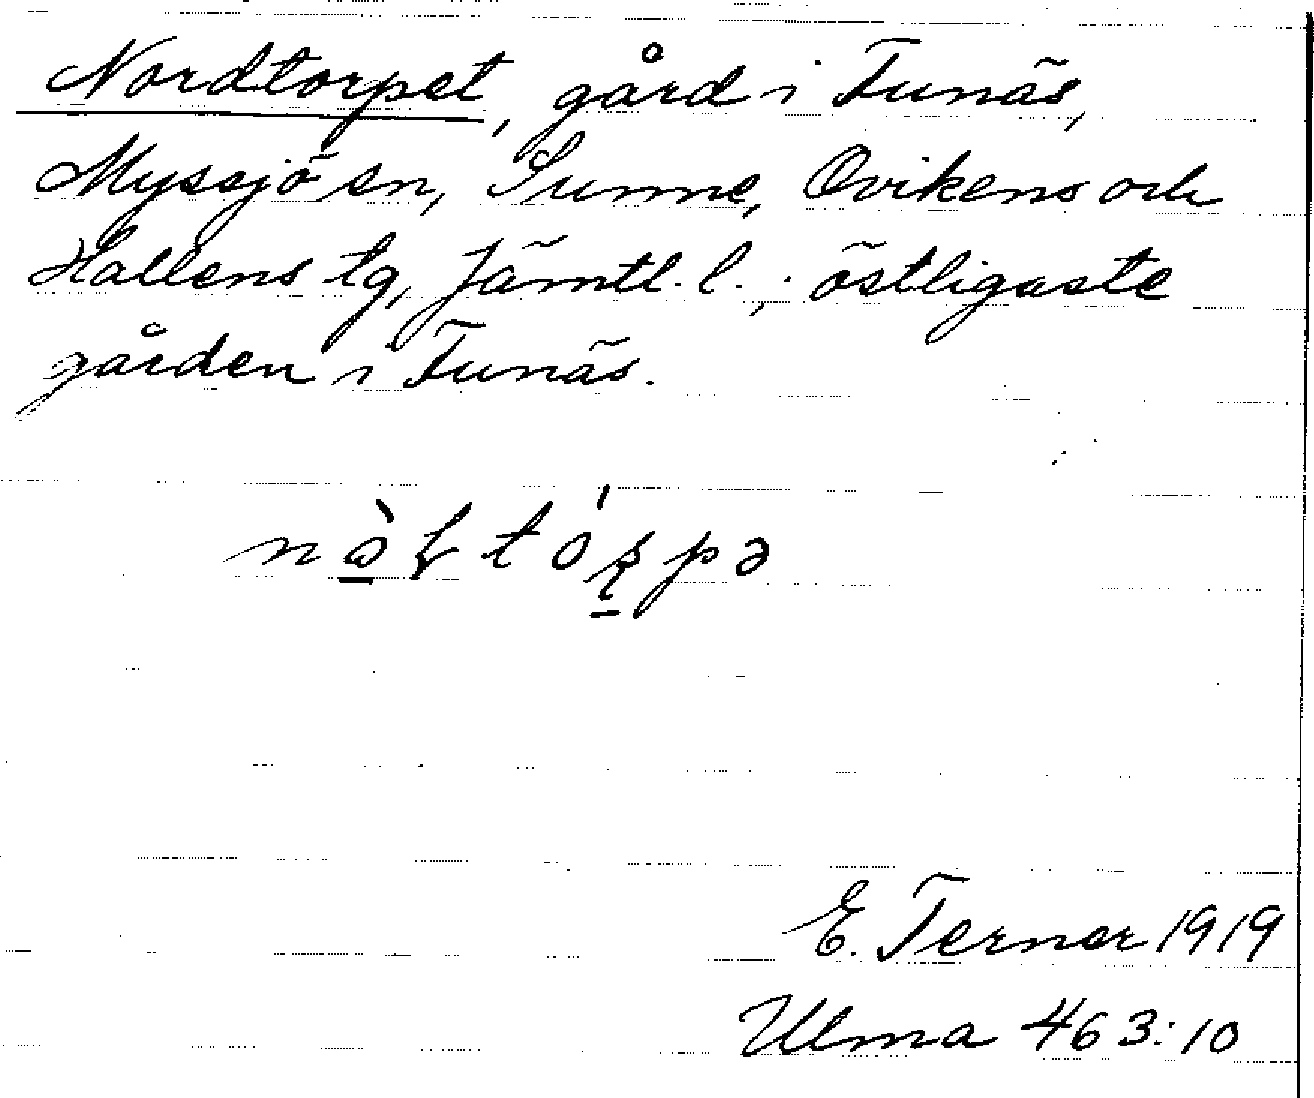 Nordtorpet, gård i Funäs,
Myssjö sn, Sunne, Ovikens och
Hallens tg, Jämtl. l.; östligaste
gården i Funäs.
E. Terner 1919
Ulma 463:10